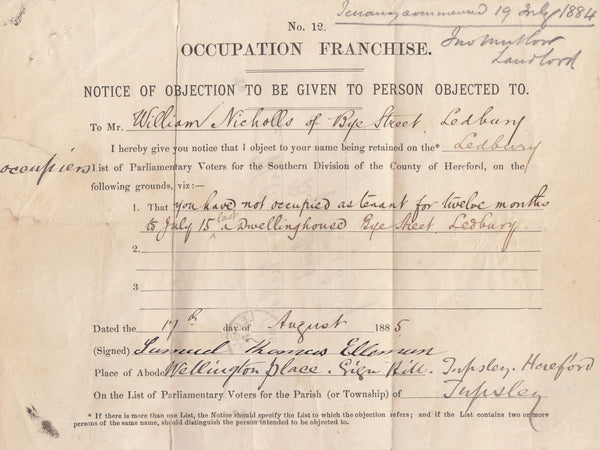 Tenancy commenced 19 July 1884
No. 12.
Jno Mutlow
Landlord
OCCUPATION FRANCHISE.
NOTICE OF OBJECTION TO BE GIVEN TO PERSON OBJECTED TO.
To Mr. William Nicholls of Bye Street, Ledbury
I hereby give you notice that I object to your name being retained on the* Ledbury
occupiers List of Parliamentary Voters for the Southern Division of the County of Hereford, on the
following grounds, viz:—
1. That you have not occupied as tenant for twelve months
to July 15 last a Dwellinghouse Bye Street, Ledbury.
2.
3
Dated the 17th day of August 1885
(Signed) Samuel Thomas Elleman
Place of Abode Wellington place. Eign Hill. Tupsley. Hereford
On the List of Parliamentary Voters for the Parish (or Township) of Tupsley
* If there is more than one List, the Notice should specify the List to which the objection refers; and if the List contains two or more
persons of the same name, should distinguish the person intended to be objected to.